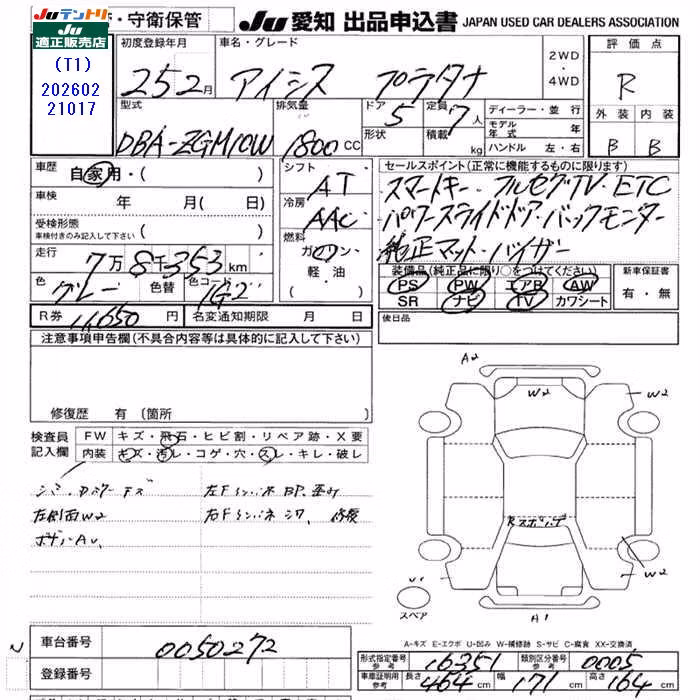 JUテントリ
JU適正販売店
(T1)
202602
21017
・守衛保管
JU 愛知 出品申込書 JAPAN USED CAR DEALERS ASSOCIATION
初度登録年月 車名・グレード
25 2月 アイシス プラタナ
2WD・4WD
評価点
R
型式 排気量 ドア 定員
DBA-ZGM10W 1800CC 5 7人
形状 積載 kg
ディーラー・並行
モデル年式 年
ハンドル 左・右
外装 内装
B B
車歴 自家用・( )
車検 年 月( 日)
受検形態
車検付きのみ記入して下さい ( )
走行 7万8千353km
色 グレー 色替 色コード 1G2
シフト AT
冷房 AAC
燃料 ガソリン・軽油・( )
セールスポイント(正常に機能するものに限ります)
スマートキー・フルセグTV・ETC
パワースライドドア・バックモニター
純正マット・バイザー
装備品(純正品に限り○をつけてください)
PS PW エアB AW
SR ナビ TV カワシート
新車保証書
有・無
R券 11,650円 名変通知期限 月 日
後日品
注意事項申告欄(不具合内容等は具体的に記入して下さい)
修復歴 有 (箇所
検査員記入欄 FW キズ・飛石・ヒビ割・リペア跡・X要
内装 キズ・汚レ・コゲ・穴・スレ・キレ・破レ
左側面W2
A2
W2
W2
W2
A1
スペア
A-キズ E-エクボ U-凹み W-補修跡 S-サビ C-腐食 XX-交換済
車台番号 0050272
登録番号
形式指定番号 参考 16351 類別区分番号 参考 0005
車庫証明用 参考 長さ 464cm 幅 171cm 高さ 164cm